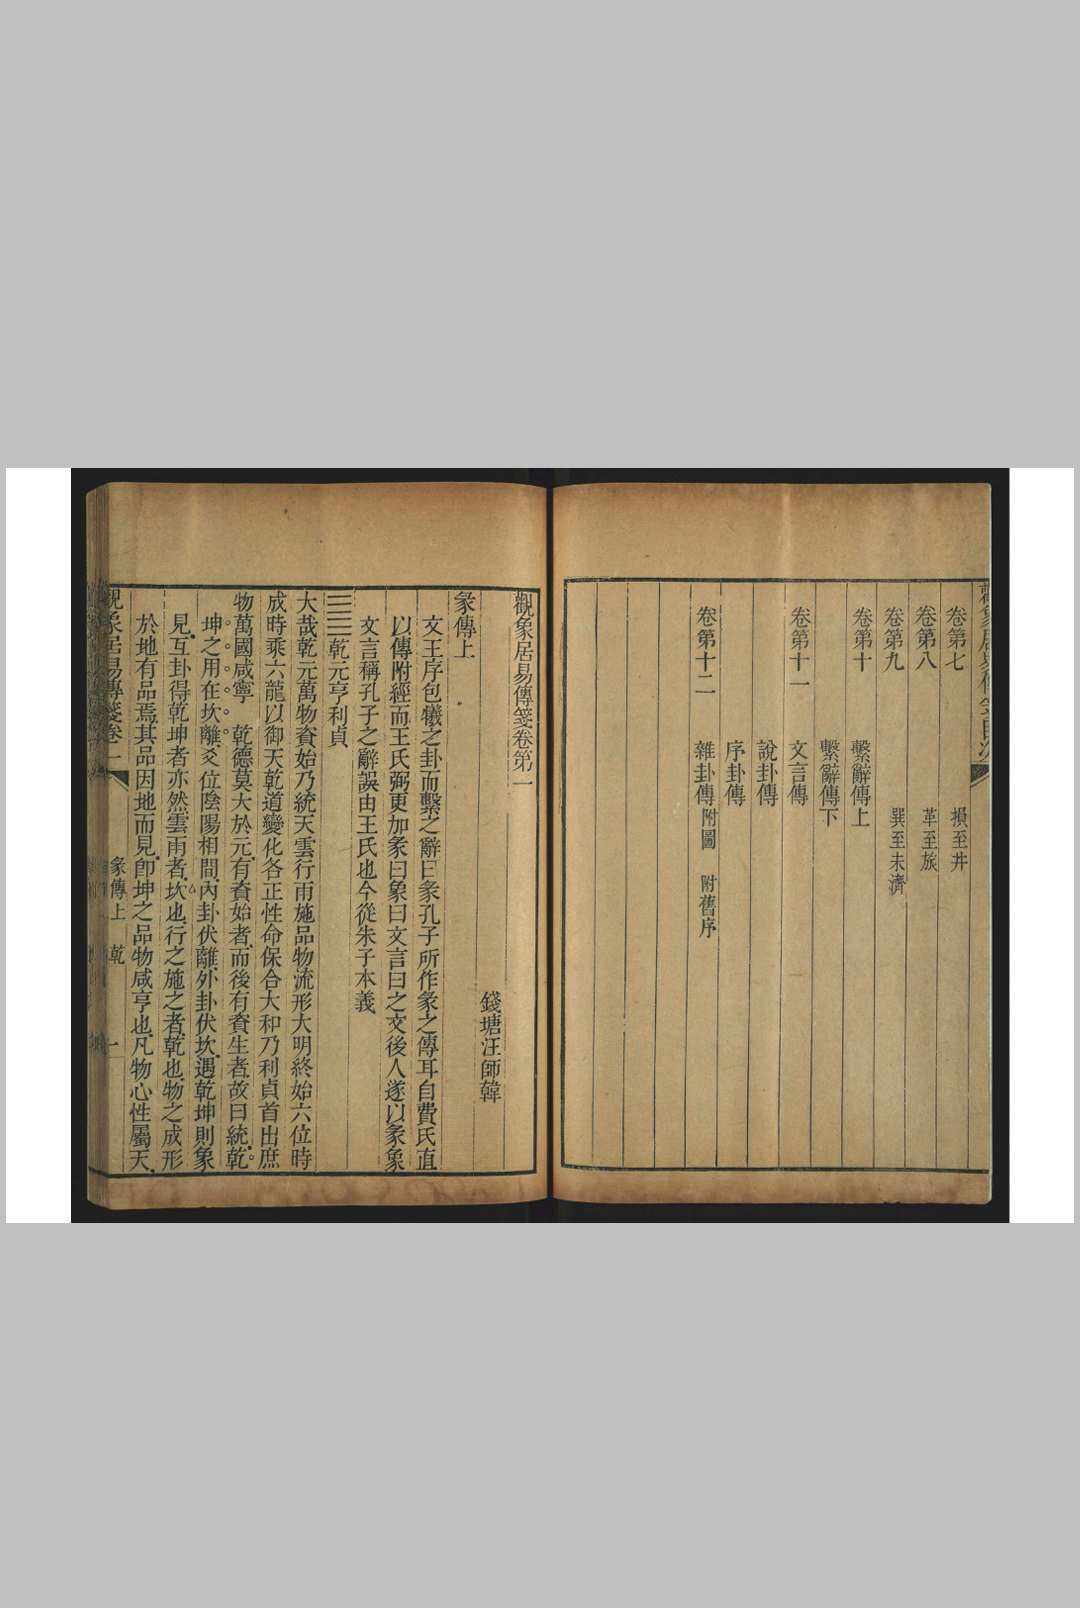 卷第七　損至井
卷第八　革至旅
卷第九　巽至未濟
卷第十　繫辭傳上
繫辭傳下
卷第十一　文言傳
說卦傳
序卦傳
卷第十二　雜卦傳附圖　附舊序
觀象居易傳箋卷第一
錢塘汪師韓
彖傳上
文王序包犧之卦而繫之辭曰彖孔子所作彖之傳耳自費氏直
以傳附經而王氏弼更加彖曰象曰文言曰之文後人遂以彖象
文言稱孔子之辭誤由王氏也今從朱子本義
乾元亨利貞
大哉乾元萬物資始乃統天雲行雨施品物流形大明終始六位時
成時乘六龍以御天乾道變化各正性命保合大和乃利貞首出庶
物萬國咸寧　乾德莫大於元有資始者而後有資生者故曰統乾
坤之用在坎離爻位陰陽相間內卦伏離外卦伏坎遇乾坤則象
見互卦得乾坤者亦然雲雨者坎也行之施之者乾也物之成形
於地有品焉其品因地而見卽坤之品物咸亨也凡物心性屬天
觀象居易傳箋卷一　彖傳上　乾　一